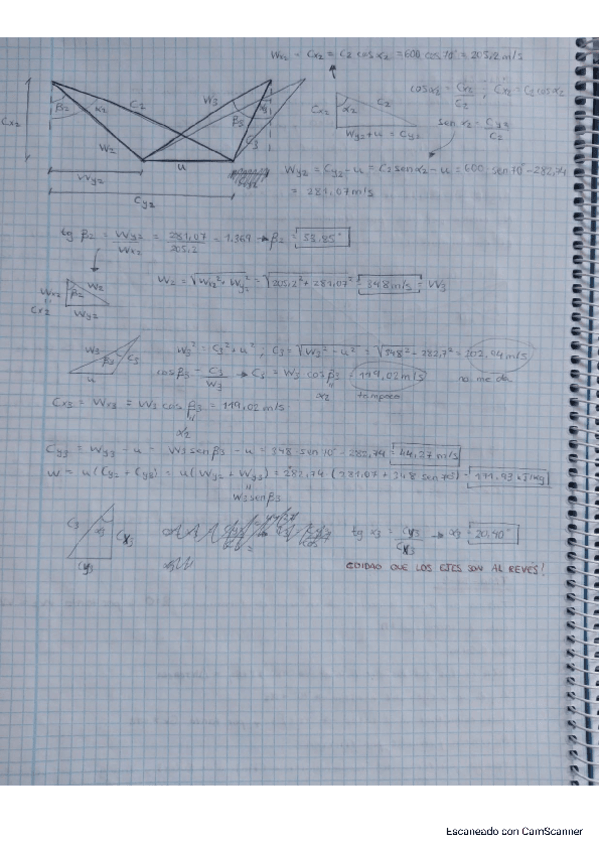 Wx2 = Cx2 = C2 cos α2 = 600 cos 70° = 205,2 m/s
cos α2 = Cx2/C2 ; Cx2 = C2 cos α2
sen α2 = Cy2/C2
Cx2 α2 C2
Wy2+u = Cy2
Cx2 β2 α2 C2 W2 W3 β3 C3
u
Wy2
Cy2
Wy2 = Cy2 - u = C2 sen α2 - u = 600 · sen 70° - 282,74
= 281,07 m/s
tg β2 = Wy2/Wx2 = 281,07/205,2 = 1.369 → β2 = 53.85°
W2 = √Wx2² + Wy2² = √205,2² + 281,07² = 348 m/s = W3
Wx2 β2 W2
Cx2 Wy2
W3 β3 C3
u
W3² = C3² + u² ; C3 = √W3² - u² = √348² - 282,7² = 202,94 m/s
cos β3 = C3/W3 → C3 = W3 cos β3 = 119,02 m/s no me da
α2 tampoco
Cx3 = Wx3 = W3 cos β3 = 119,02 m/s
α2
Cy3 = Wy3 - u = W3 sen β3 - u = 348 · sen 70° - 282,74 = 44,27 m/s
w = u(Cy2 + Cy3) = u(Wy2 + Wy3) = 282,74 · (281,07 + 348 sen 70°) =
W3 sen β3
C3 α3 Cx3
Cy3
tg α3 = Cy3/Cx3 → α3 = 20,40°
CUIDAO QUE LOS EJES SON AL REVÉS!
Escaneado con CamScanner